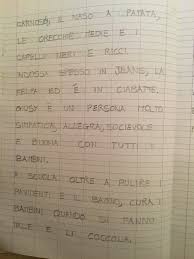 CARNOSE, IL NASO A PATATA,
LE ORECCHIE MEDIE E I
CAPELLI NERI E RICCI.
INDOSSA SPESSO IN JEANS, LA
FELPA ED È IN CIABATTE.
GIUSY È UN PERSONA MOLTO
SIMPATICA, ALLEGRA, SOCIEVOLE
E BUONA CON TUTTI I
BAMBINI.
A SCUOLA OLTRE A PULIRE I
PAVIMENTI E IL BAGNO, CURA I
BAMBINI QUANDO SI FANNO
MALE E LI COCCOLA.